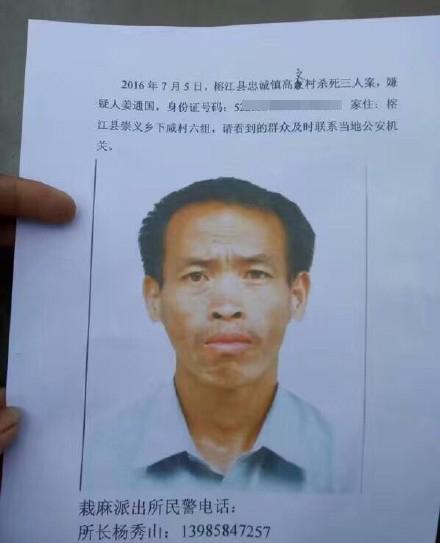 2016年7月5日，榕江县忠诚镇高文村杀死三人案，嫌
疑人姜通国，身份证号码：52 家住：榕
江县崇义乡下咸村六组，请看到的群众及时联系当地公安机
关。
栽麻派出所民警电话：
所长杨秀山：13985847257